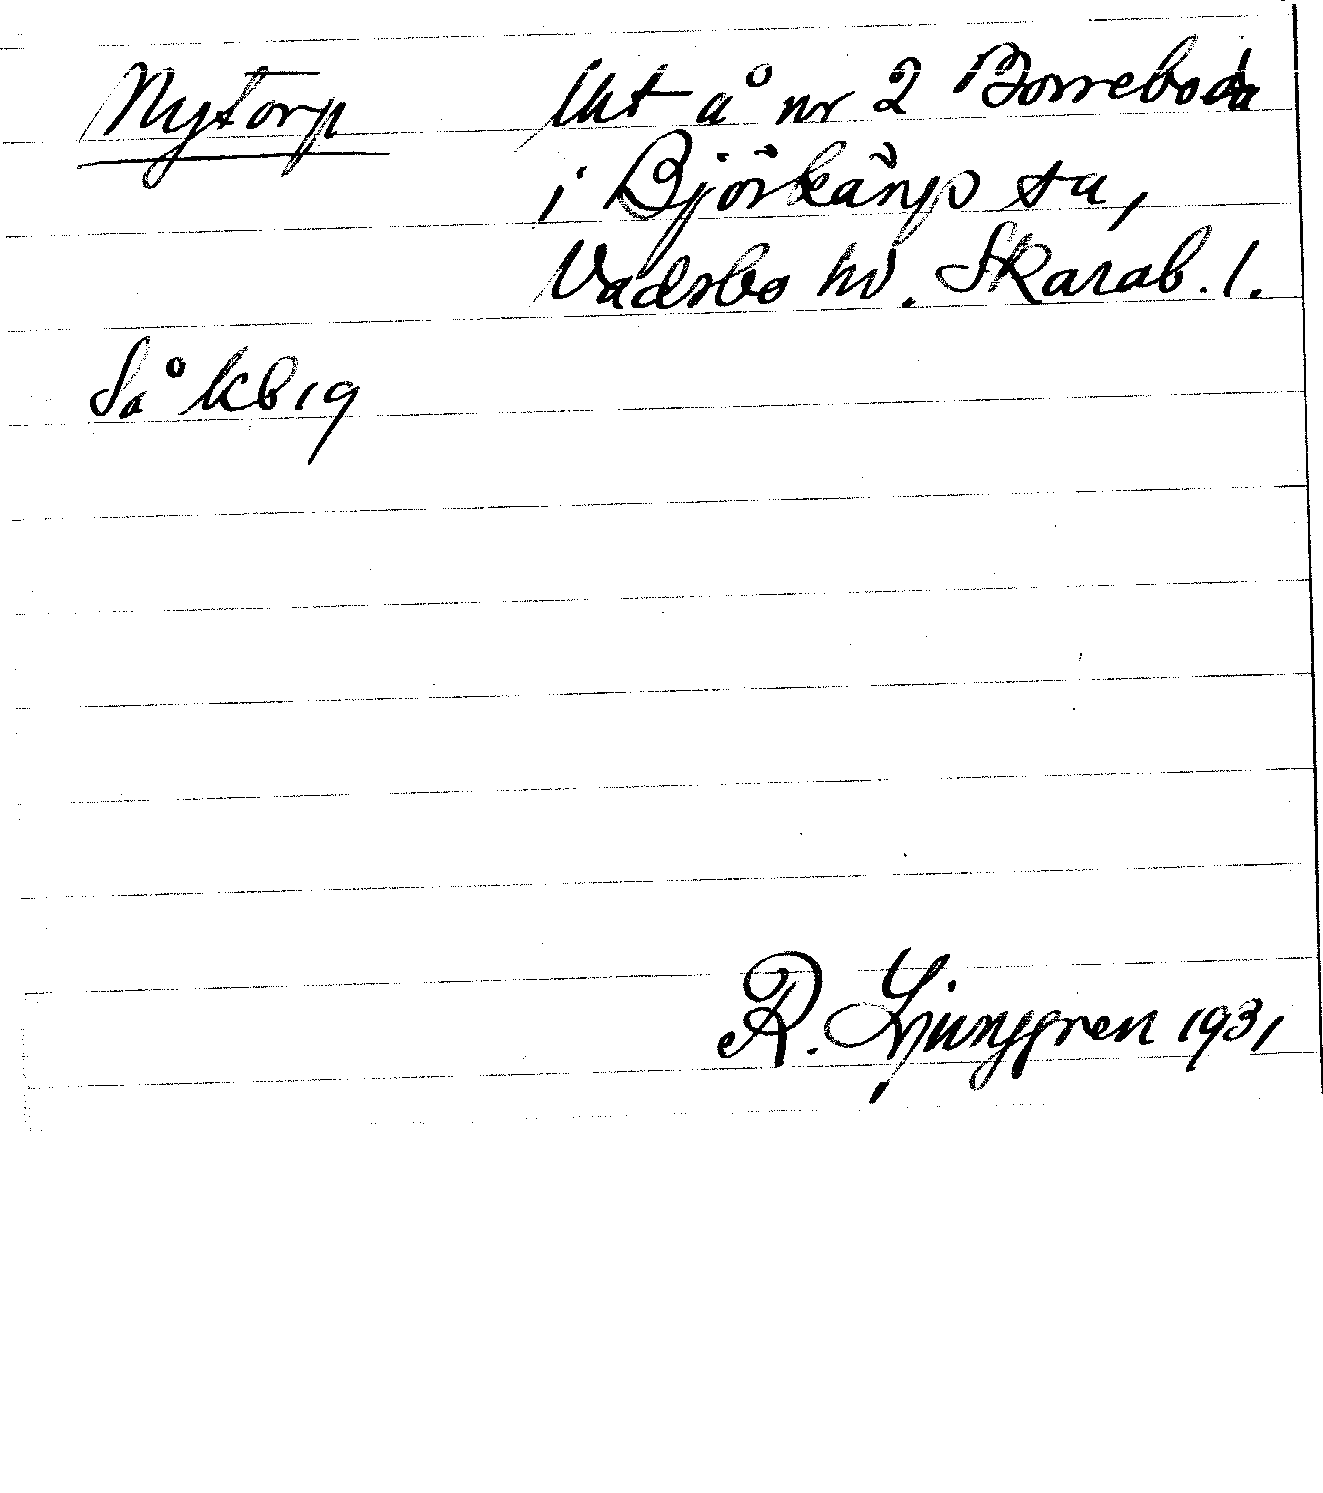 Nytorp
Uht å nr 2 Borreboda
i Björkängs sn,
Vadsbo hd. Skarab. l.
Så kb 19
R. Ljunggren 1931